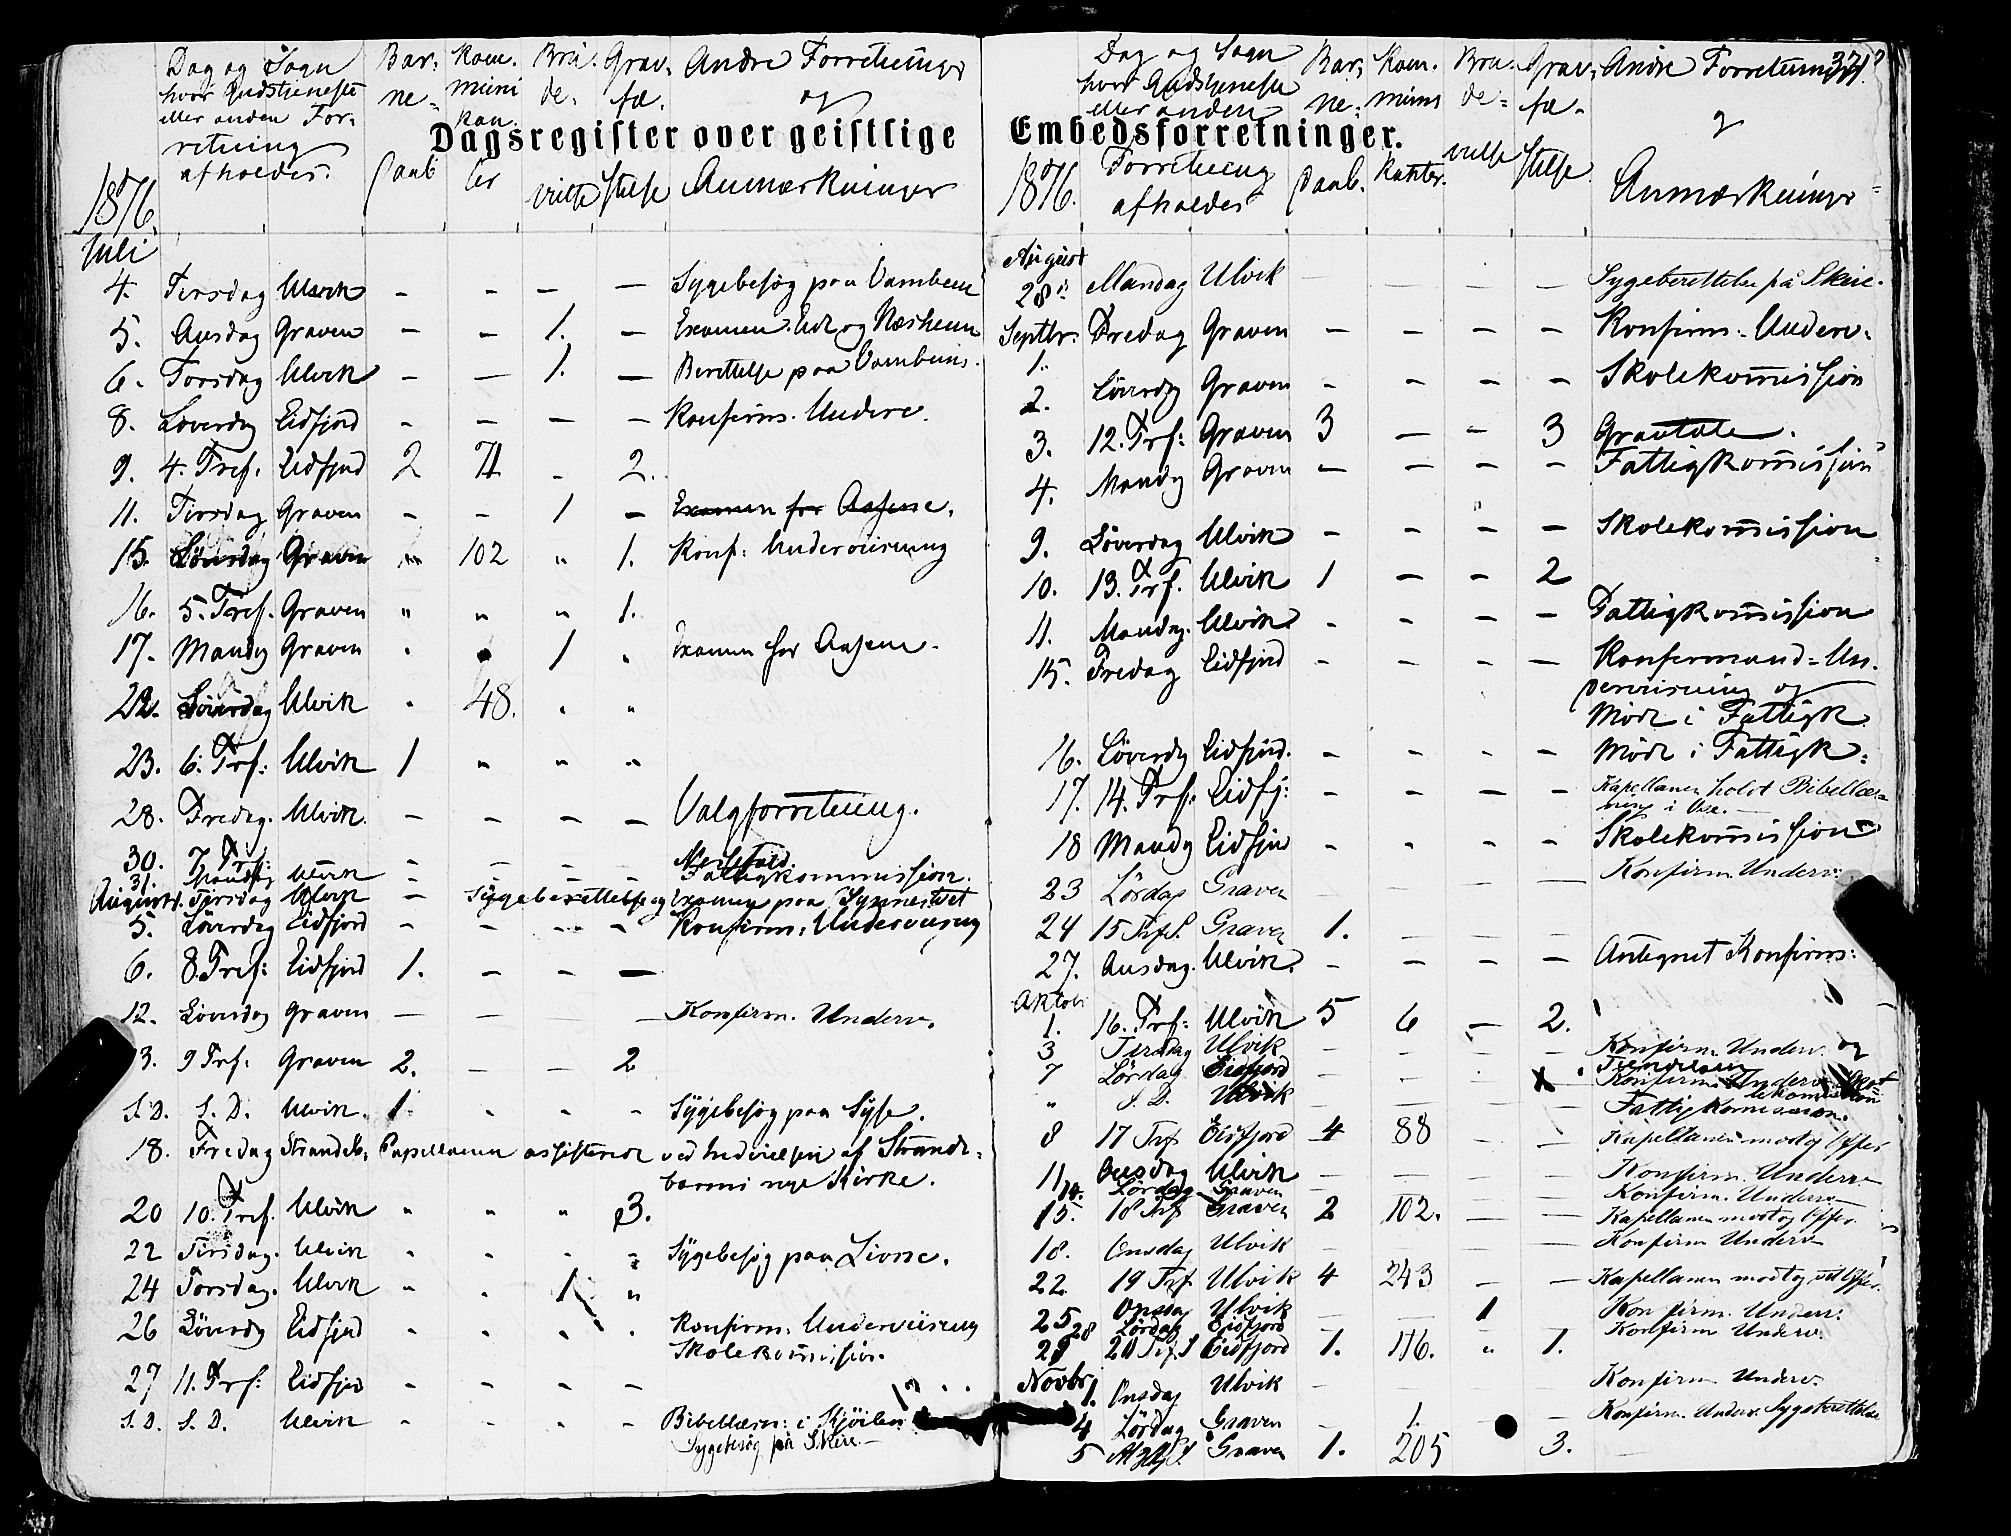 Dagsregister over geistlige Embedsforretninger.
371
Dag og Sogn hvor Gudstjeneste eller anden Forretning afholdes. Barnedaab Kommunikanter Brudevielse Græfæstelse Andre Forretninger og Anmærkninger
1876.
Juli
4. Tirsdag Ulvik - - - - Sygebesøg paa
5. Onsdag Graven - - 1. - Examen og Næsheim
6. Torsdag Ulvik - - 1. - Berettelse paa
8. Løverdag Eidfjord - - - - Konfirms. Underv.
9. 4. Tref. Eidfjord 2 71 - 2.
11. Tirsdag Graven - - 1 - Examen for Aasene.
15. Løverdag Graven " 102 " 1. Konf: Underviisning
16. 5. Tref. Graven " " " 1.
17. Mandag Graven 1 " Examen for Aasene.
22. Løverdag Ulvik " 48. " "
23. 6. Trf: Ulvik 1 " " "
28. Fredag. Ulvik. - - - - Valgforretning.
30. 7. Trf: - - - - Messefald.
31. Mandag Ulvik Fattigkommission.
August 1. Tirsdag Ulvik - Sygeberettelse og Examen paa Synnestvet
5. Løverdag Eidfjord - - - - Konfirm: Underviisning
6. 8 Tref: Eidfjord 1. - - -
12. Løverdag Graven - - - - Konfirm. Underv.
13. 9 Trf: Graven 2. - - 2
S. D. S. D. Ulvik. 1. - - - Sygebesøg paa Syse.
18. Fredag Strandeb. Capellanen assisterede ved Indvielsen af Strande-
barms nye Kirke.
20 10. Tref. Ulvik " " " 3.
22 Tirsdag. Ulvik " " " " Sygebesøg paa Lione.
24 Torsdag. Ulvik " " 1 "
26 Løverdag Eidfjord " " " " Konfirm: Underviisning
Skolekommission.
27 11. Trf: Eidfjord - - - -
S. D. S. D. Ulvik - - - - Bibellæsn: i
Sygebesøg på Skeie.
Dag og Sogn hvor Gudstjeneste eller anden Forretning afholdes Barnedaab. Kommunikanter. Brudevielse Gravfæstelse Andre Forretninger og Anmærkninger
1876.
August
28de Mandag Ulvik - - - - Sygeberettelse på Skeie.
Septbr: 1. Fredag Graven - - - - Konfirms: Underv.
2. Løverdag Graven - - - - Skolekommission
3. 12. Trf: Graven 3 - - 3 Gravtale.
4. Mandag Graven - - - - Fattigkommission
9. Løverdag Ulvik - - - - Skolekommission
10. 13. Trf. Ulvik 1 - - 2
11. Mandag. Ulvik - - - - Fattigkommission
15. Fredag Eidfjord - - - - Konfirmand-Un-
derviisning og
Møde i Fattigk.
16. Løverdag Eidfjord. - - - - Møde i Fattigk.
17. 14. Trf. Eidfj: - - - - Kapellanen holdt Bibellæs-
ning i
18 Mandag Eidfjord - - - - Skolekommission
23 Lørdag Graven - - - - Konfirm. Underv.
24 15 Trf. S. Graven 1. - - -
27. Onsdag. Ulvik. - - - - Antegnet Konfirms:
Oktobr
1. 16. Trf: Ulvik 5 6 - 2.
3 Tirsdag Ulvik - - - - Konfirm. Underv. og
7 Lørdag Eidfjord - - - Konfirm. Underv.
" S. D. Ulvik - - - - Fattigkommission.
8 17 Trf Eidfjord 4 88 - - Kapellanen modtog Offer
11 Onsdag Ulvik - - - - Konfirm. Underv.
14. Lørdag Graven - - Konfirm. Underv.
15. 18 Trf Graven 2 102. - - Kapellanen modtog Offer.
18. Onsdag Ulvik - - - - Konfirm Underv
22. 19 Trf Ulvik 4 243 - - Kapellanen modtog Offer.
25 Onsdag Ulvik - - 1 Konfirm. Underv.
28 Lørdag Eidfjord Konfirm Underv.
29 20 Trf. S Eidfjord 1. 116. " 1.
Novbr 1. Onsdag Ulvik - - - - Konfirm Underv.
4 Lørdag Graven - 1. - Konfirm. Underv. Sygeberettelse
5 Graven 1. 205 3.